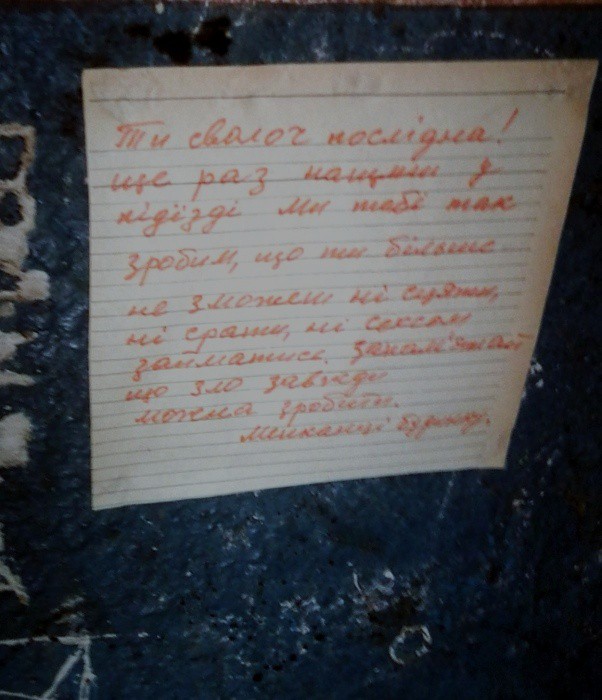 Ти сволоч послідна!
ще раз нацциш у
підїзді ми тобі так
зробим, що ти більше
не зможеш ні сцяти,
ні срати, ні сексом
займатись. Запам'ятай
що зло завжди
можна зробити.
Мешканці будинку.